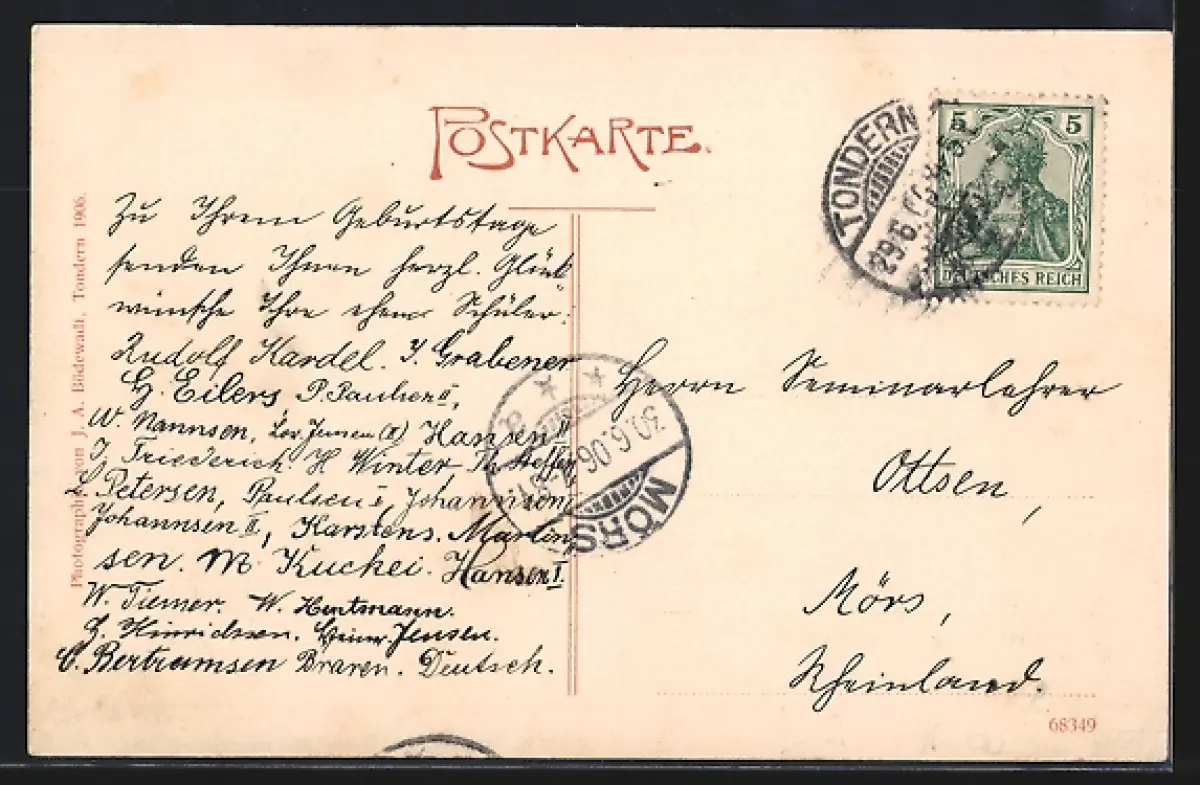 POSTKARTE.
Photographie von J. A. Bödewadt, Tondern 1906.
Zu Ihrem Geburtstage
senden Ihnen herzl. Glück-
wünsche Ihre ehem. Schüler:
Rudolf Kardel. J. Grabener
G. Eilers P. Paulsen II,
W. Nannsen, Jensen (II) Hansen II
J. Friederich. H Winter, Steffen
L. Petersen, Paulsen I, Johannsen,
Johannsen II, Karstens. Martin
sen. M. Kuchei. Hansen I.
W. Tiemer. W. Hentmann.
Hinrichsen. Jensen.
C. Bertramsen Braren. Deutsch.
TONDERN
29.6.06
5 5
DEUTSCHES REICH
MÖRS
30.6.06
Herrn Seminarlehrer
Ottsen,
Mörs,
Rheinland.
68349